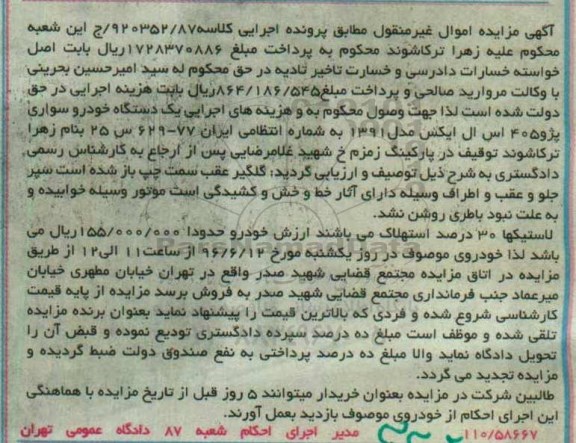 آگهی مزایده اموال غیرمنقول مطابق پرونده اجرایی کلاسه۹۲۰۳۵۲/۸۷/ج این شعبه
محکوم علیه زهرا ترکاشوند محکوم به پرداخت مبلغ ۱۷۲۸۳۷۰۸۸۶ریال بابت اصل
خواسته خسارات دادرسی و خسارت تاخیر تادیه در حق محکوم له سید امیرحسین بحرینی
با وکالت مروارید صالحی و پرداخت مبلغ۸۶۴/۱۸۶/۵۴۵ریال بابت هزینه اجرایی در حق
دولت شده است لذا جهت وصول محکوم به و هزینه های اجرایی یک دستگاه خودرو سواری
پژو۴۰۵ اس ال ایکس مدل۱۳۹۱ به شماره انتظامی ایران ۷۷-۶۲۹ س ۲۵ بنام زهرا
ترکاشوند توقیف در پارکینگ زمزم خ شهید غلامرضایی پس از ارجاع به کارشناس رسمی
دادگستری به شرح ذیل توصیف و ارزیابی گردید: گلگیر عقب سمت چپ باز شده است سپر
جلو و عقب و اطراف وسیله دارای آثار خط و خش و کشیدگی است موتور وسیله خوابیده و
به علت نبود باطری روشن نشد.
لاستیکها ۳۰ درصد استهلاک می باشند ارزش خودرو حدودا ۱۵۵/۰۰۰/۰۰۰ریال می
باشد لذا خودروی موصوف در روز یکشنبه مورخ ۹۶/۶/۱۲ از ساعت۱۱ الی۱۲ از طریق
مزایده در اتاق مزایده مجتمع قضایی شهید صدر واقع در تهران خیابان مطهری خیابان
میرعماد جنب فرمانداری مجتمع قضایی شهید صدر به فروش برسد مزایده از پایه قیمت
کارشناسی شروع شده و فردی که بالاترین قیمت را پیشنهاد نماید بعنوان برنده مزایده
تلقی شده و موظف است مبلغ ده درصد سپرده دادگستری تودیع نموده و قبض آن را
تحویل دادگاه نماید والا مبلغ ده درصد پرداختی به نفع صندوق دولت ضبط گردیده و
مزایده تجدید می گردد.
طالبین شرکت در مزایده بعنوان خریدار میتوانند ۵ روز قبل از تاریخ مزایده با هماهنگی
این اجرای احکام از خودروی موصوف بازدید بعمل آورند.
۱۱۰/۵۸۶۶۷ مدیر اجرای احکام شعبه ۸۷ دادگاه عمومی تهران